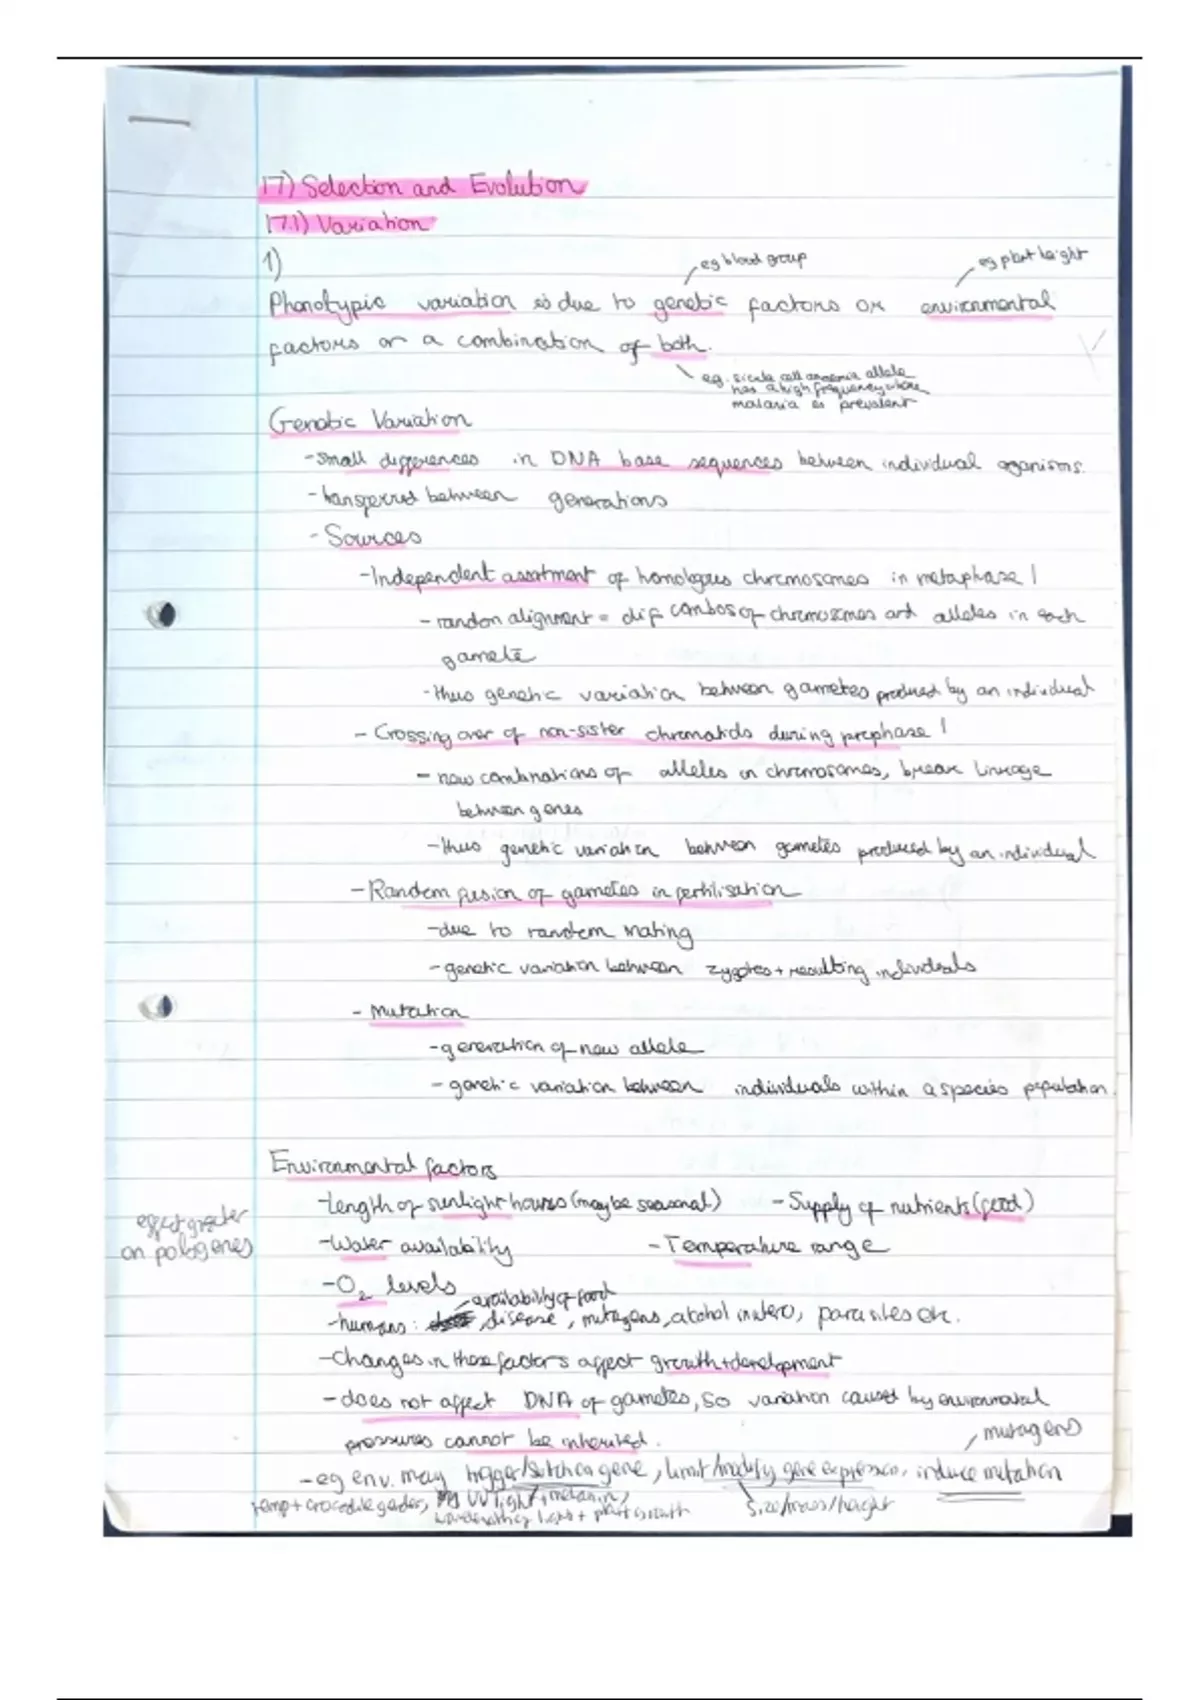 17) Selection and Evolution
17.1) Variation
1)
eg blood group
eg plant height
Phenotypic variation is due to genetic factors or environmental
factors or a combination of both.
eg. sickle cell anaemia allele
has a high frequency where
malaria is prevalent
Genetic Variation
-small differences in DNA base sequences between individual organisms.
-transferred between generations
-Sources
-Independent assortment of homologous chromosomes in metaphase 1
-random alignment = dif combos of chromosomes and alleles in each
gamete
-thus genetic variation between gametes produced by an individual
-Crossing over of non-sister chromatids during prophase 1
-new combinations of alleles on chromosomes, break linkage
between genes
-thus genetic variation between gametes produced by an individual
-Random fusion of gametes in fertilisation
-due to random mating
-genetic variation between zygotes + resulting individuals
-Mutation
-generation of new allele
-genetic variation between individuals within a species population.
Environmental factors
-length of sunlight hours (maybe seasonal) -Supply of nutrients (food)
effect greater
on polygenes
-Water availability -Temperature range
-O₂ levels
availability of food
-humans: , disease, mutagens, alcohol in utero, parasites etc.
-Changes in these factors affect growth + development
-does not affect DNA of gametes, so variation caused by environmental
pressures cannot be inherited.
mutagens
-eg env. may trigger/switch on gene, limit/modify gene expression, induce mutation
temp + crocodile gender, UV light + melanin,
size/mass/height
wavelength of light + plant growth